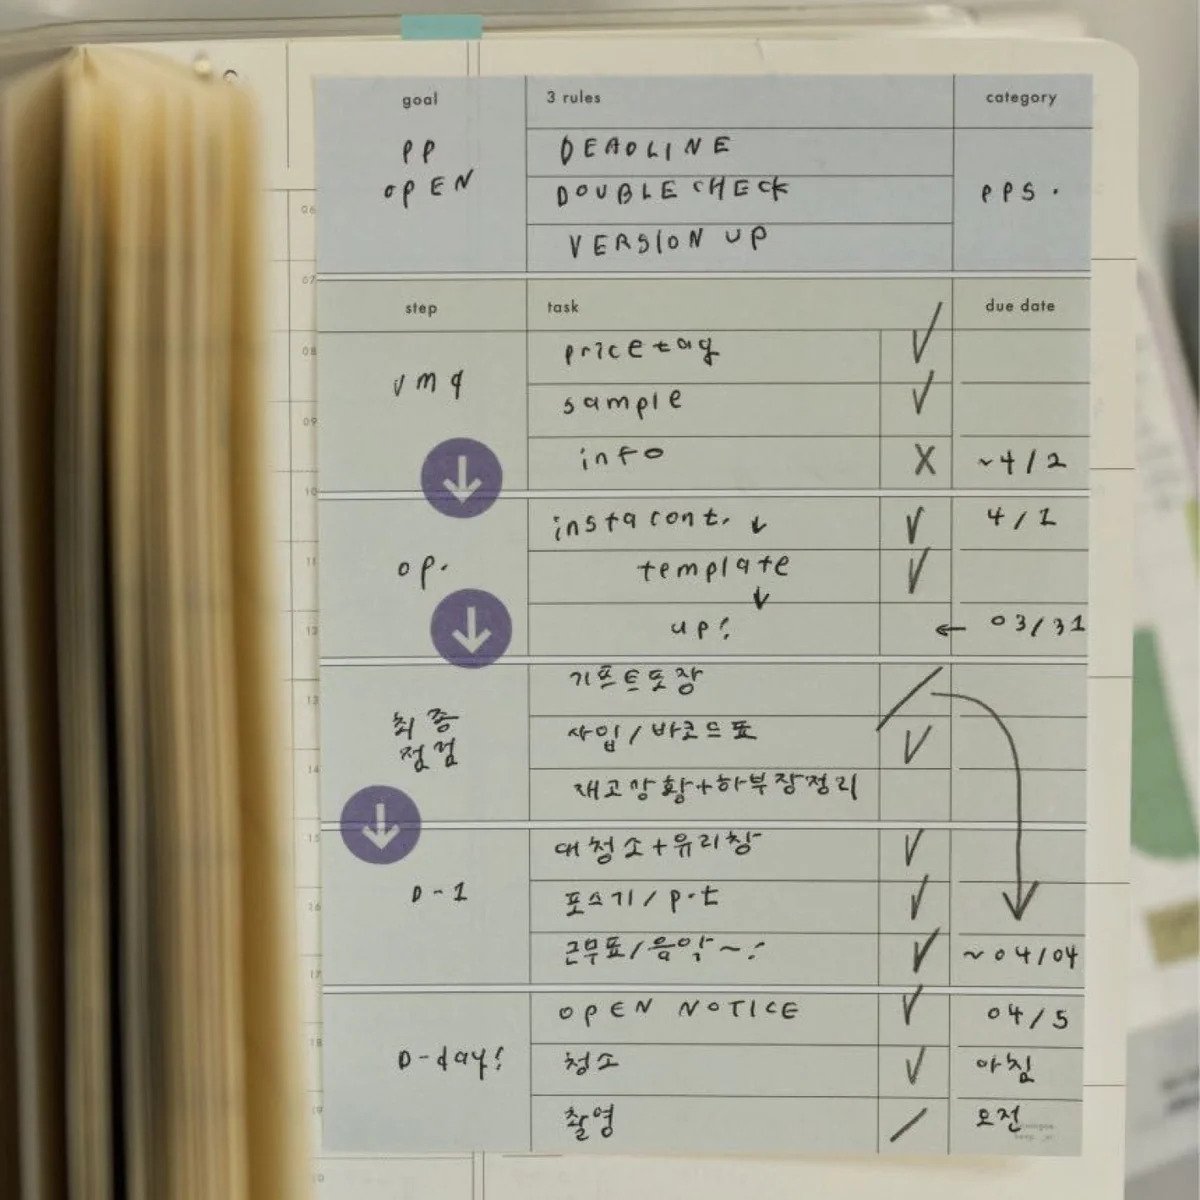 goal
3 rules
category
PP
OPEN
DEADLINE
DOUBLE CHECK
VERSION UP
PPS.
step
task
due date
vmd
price tag ✓
sample ✓
info X ~4/2
op.
insta cont. ↓ ✓ 4/1
template ✓
↓
up! ← 03/31
최종
점검
기프트도장 /
사입/바코드표 ✓
재고상황+하부장정리
D-1
대청소+유리창 ✓
포스기/p.t ✓
근무표/음악~! ✓ ~04/04
D-day!
OPEN NOTICE ✓ 04/5
청소 ✓ 아침
촬영 / 오전
06
07
08
09
10
11
12
13
14
15
16
17
18
19